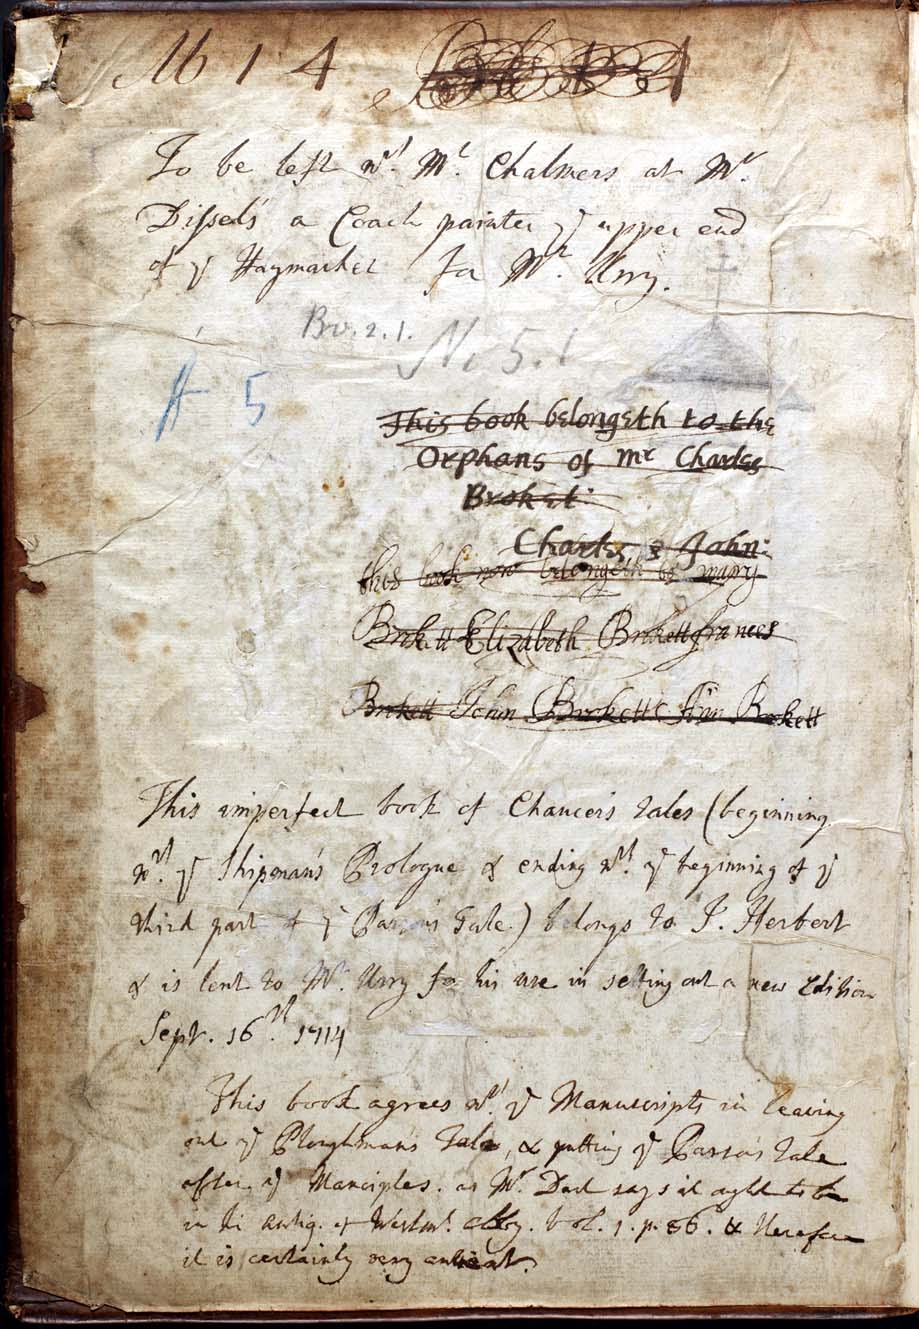 M 1 4
To be left wt. Mr. Chalmers at Mr.
Dissel's a Coach painter ye upper end
of ye Haymarket for Mr. Urry.
Bv. 2. 1.
N. 5. 1
A 5
This book belongeth to the
Orphans of Mr Charles
Broket:
Charles & John:
this book now belongeth to mary
Brokett Elizabeth Brokett frances
Brokett John Brokette Ann Brokett
This imperfect book of Chaucer's tales (beginning
wth. ye Shipman's Prologue & ending wth. ye beginning of ye
third part of ye Parson's Tale.) belongs to J. Herbert
& is lent to Mr. Urry for his use in setting out a new Edition
Sept. 16th. 1714
This book agrees wt. ye Manuscripts in leaving
out ye Ploughman's tale, & putting ye Parson's tale
after ye Manciples. as Mr. Dart says it ought to be
in his Antiq. of Westmr. Abby. vol. 1. p. 86. & therefore
it is certainly very antient.